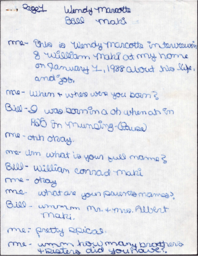 Page 1 Wendy Marcotte
Bill Maki
me- This is Wendy Marcotte interviewing
William Maki at my home
on January 1, 1988 about his life
and job.
me- When & where were you born?
Bill- I was born in a
in
me- ooh okay
me- Um what is your full name?
Bill- William Conrad Maki
me- okay
me- what are your parents names?
Bill- ummm Mr. & Mrs. Albert
Maki.
me- pretty typical
me- umm, how many brothers
& sisters did you have?